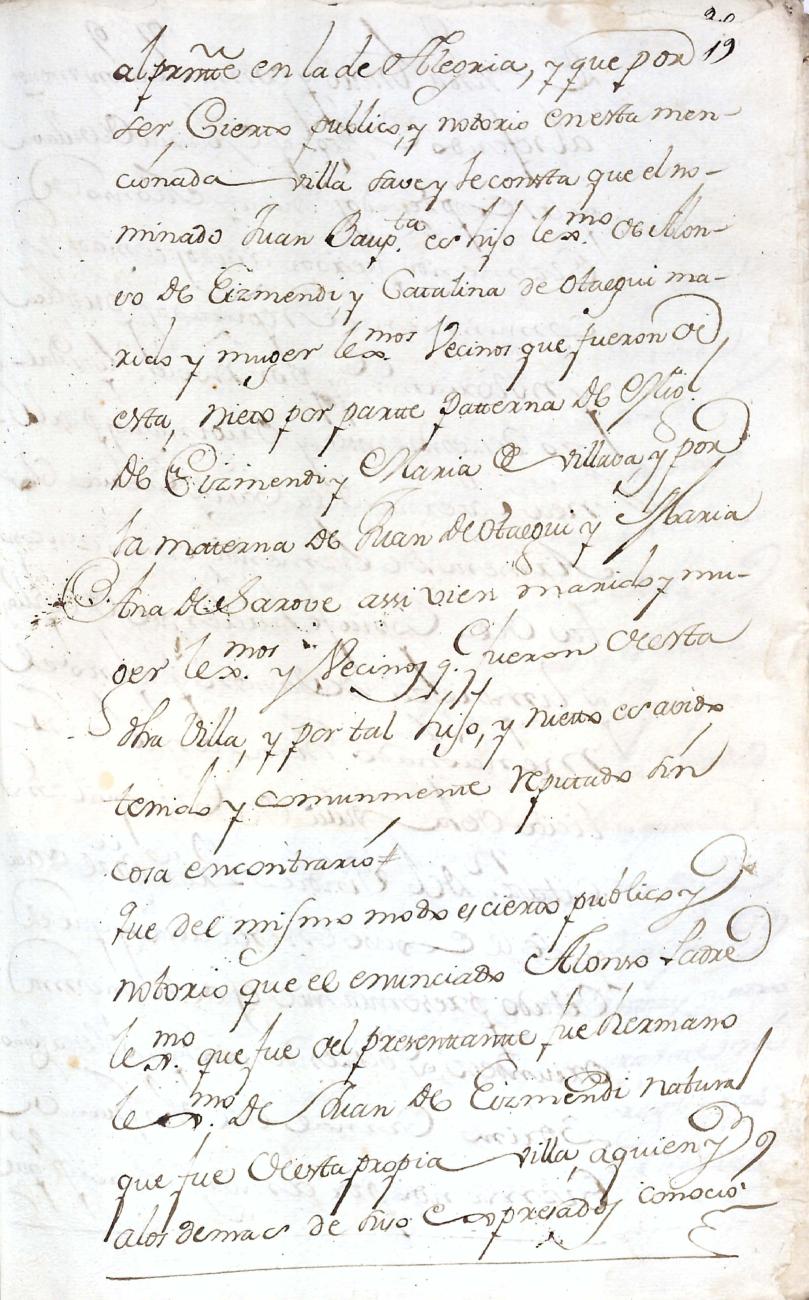 20
19
al prnte en la de Alegria, y que por
ser Cierto publico, y notorio en esta men-
cionada villa save y le consta que el no-
minado Juan Baup.ta es hijo lex.mo de Alon-
so de Eizmendi y Catalina de Otaegui ma-
rido y muger lex.mos Vecinos que fueron de
esta, nieto por partte Patterna de
de Eizmendi y Maria de villava, y por
la materna de Juan de Otaegui y Maria
Ana de Sarove assi vien marido y mu-
ger lex.mos y Vecinos q. fueron de esta
dha Villa, y por tal hijo, y nietto es avido
tenido y comunmente reputado sin
cosa encontrario
Que del mismo modo es cierto publico y
notorio que el enunciado Alonso Padre
lex.mo que fue del presenttantte fue hermano
lex.mo de Juan de Eizmendi natural
que fue de esta propia villa, a quien y
a los demas de suso expresados conocio